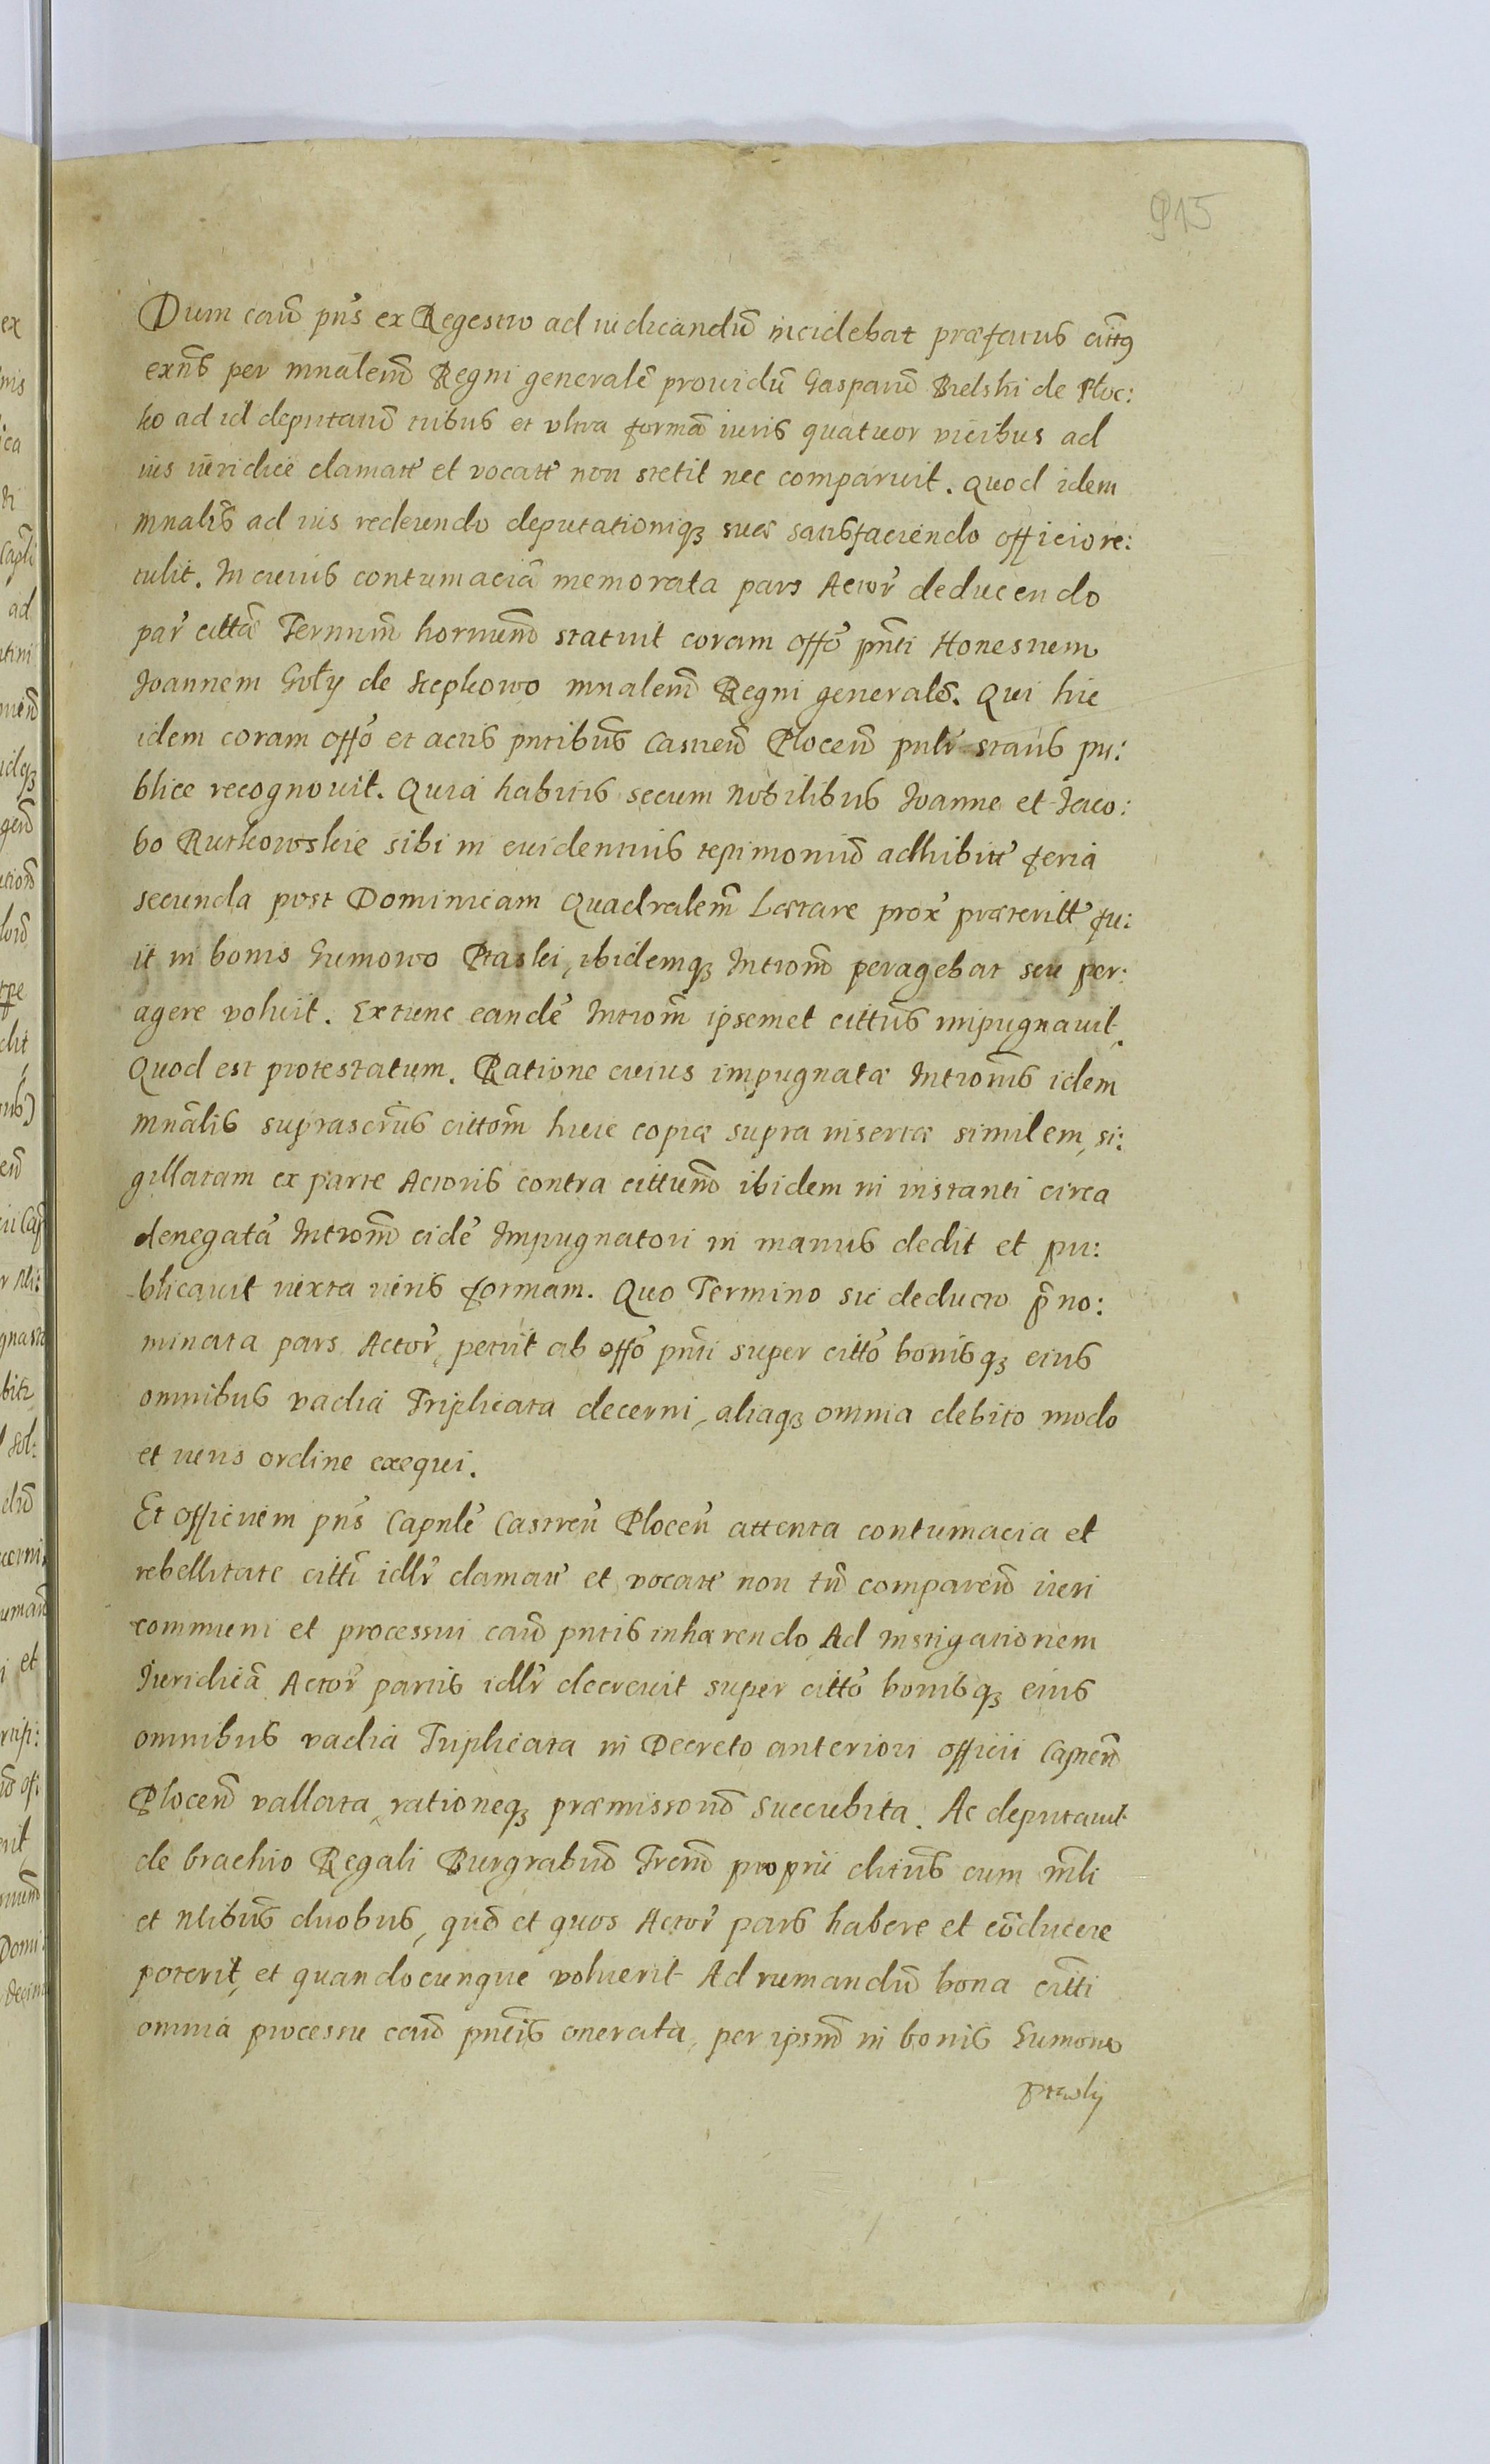 915
Dum cau͠ pn͠s ex Regestro ad iudicandu͠ incidebat præfatus citt͠9
exn͠s per mnalem͠ Regni generale͠ prouidu͠ Gasparu͠ Bielski de Ploc:
ko ad id deputatu͠ tribus et ultra forma͠ iuris quatuor vicibus ad
ius iuridice clamatt͠ et vocatt͠ non stetit nec comparuit. Quod idem
mnalis͠ ad ius redeundo deputationiq3 suæ satisfaciendo officio re:
tulit. In cuius contumacia͠ memorata pars Actor͠ deducendo
par͠ citta͠ Termin͠ horum͠ statuit coram offo͠ pn͠ti Honestum
Joannem Goły de Stepkowo mnalem͠ Regni generale͠. Qui hic
idem coram offo͠ et actis pntibus͠ Castren͠ Plocen͠ pnlr͠ stans pu:
blice recognouit. Quia habitis secum Nobilibus Joanne et Jaco:
bo Rutkowskie sibi in euidentius testimoniu͠ adhibitt͠ feria
secunda post Dominicam Quadralem͠ Lætare prox͠ præteritt͠ fu:
it in bonis Gumowo Ptaski, ibidemq3 Introm͠ peragebat seu per:
agere voluit. Extunc eande͠ Introm͠ ipsemet cittus͠ impugnauit.
Quod est protestatum. Ratione cuius impugnatæ Intromis͠ idem
Mnal͠is suprascrus͠ cittom͠ huic copiæ supra insertæ similem, si:
gillatam ex parte Actoris contra cittum͠ ibidem in instanti circa
denegata͠ Introm͠ eide͠ Impugnatori in manus dedit et pu:
blicauit iuxta iuris formam. Quo Termino sic deducto p͠no:
minata pars Actor͠ petiit ab offo͠ pn͠ti super citto͠ bonisq3 eius
omnibus vadia Triplicata decerni, aliaq3 omnia debito modo
et iuris ordine exequi.
Et Officium pn͠s Capnle͠ Castren͠ Plocen͠ attenta contumacia et
rebellitate citti͠ idlr͠ clamatt͠ et vocatt͠ non tn͠ comparen͠ iuri
communi et processui cau͠ pntis inhærendo Ad instigationem
Juridica͠ Actor͠ partis idlr͠ decreuit super citto͠ bonisq3 eius
omnibus vadia Triplicata in Decreto anteriori officii Capnen͠
Plocen͠ vallata, rationeq3 præmissoru͠ succubita. Ac deputauit
de brachio Regali Burgrabiu͠ Trem͠ proprie dictus͠ cum mn͠li
et Nlibus͠ duobus, que͠ et quos Actor͠ pars habere et co͠ducere
poterit, et quandocunque voluerit Ad rumandu͠ bona citti͠
omnia processu cau͠ pn͠tis onerata, per ipsum͠ in bonis Gumowo
Ptaski